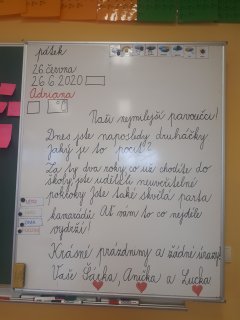 pátek
26. června
26. 6. 2020
Adriana
Naši nejmilejší pavoučci!
Dnes jste naposledy druháčky.
Jaký je to pocit?
Za ty dva roky co už chodíte do
školy, jste udělali neuvěřitelné
pokroky. Jste také skvělá parta
kamarádů. Ať vám to co nejdéle
vydrží!
Krásné prázdniny a žádné úrazy!
Vaše Šárka, Anička a Lucka